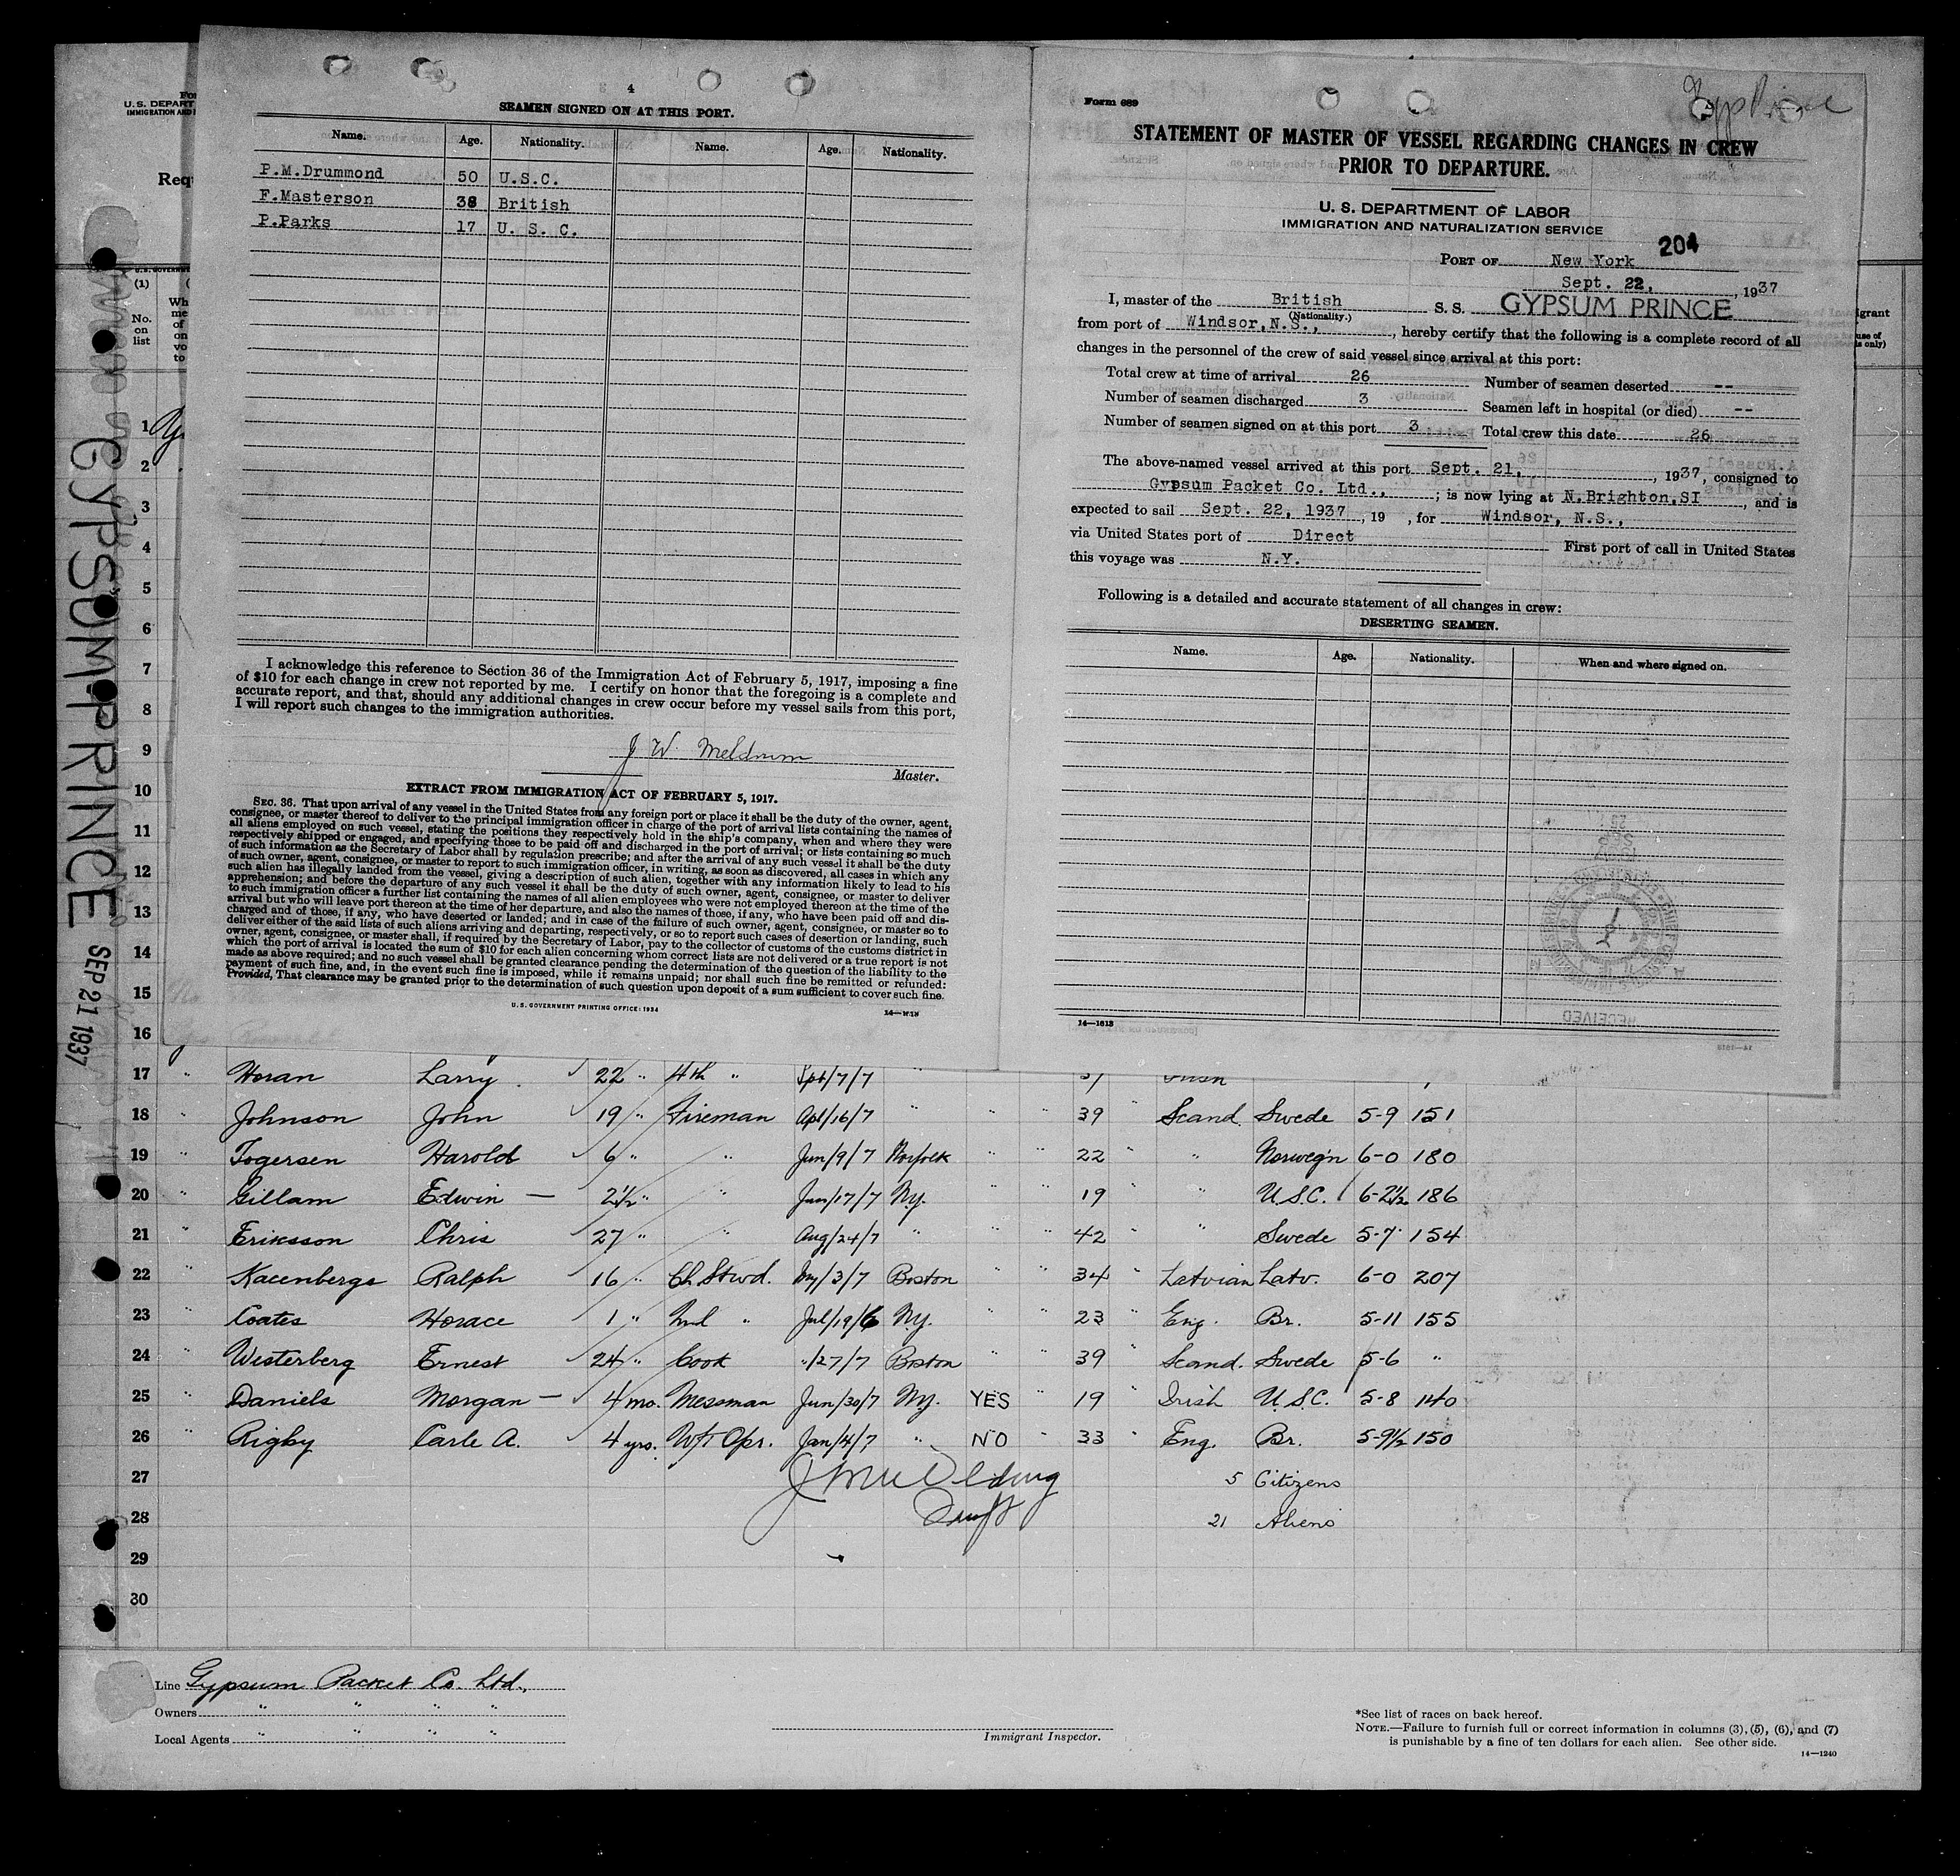 4
SEAMEN SIGNED ON AT THIS PORT.
Name. Age. Nationality. Name. Age. Nationality.
P.M.Drummond 50 U.S.C.
F.Masterson 38 British
P.Parks 17 U. S. C.
I acknowledge this reference to Section 36 of the Immigration Act of February 5, 1917, imposing a fine
of $10 for each change in crew not reported by me. I certify on honor that the foregoing is a complete and
accurate report, and that, should any additional changes in crew occur before my vessel sails from this port,
I will report such changes to the immigration authorities.
J W. Meldrum
Master.
EXTRACT FROM IMMIGRATION ACT OF FEBRUARY 5, 1917.
SEC. 36. That upon arrival of any vessel in the United States from any foreign port or place it shall be the duty of the owner, agent,
consignee, or master thereof to deliver to the principal immigration officer in charge of the port of arrival lists containing the names of
all aliens employed on such vessel, stating the positions they respectively hold in the ship's company, when and where they were
respectively shipped or engaged, and specifying those to be paid off and discharged in the port of arrival; or lists containing so much
of such information as the Secretary of Labor shall by regulation prescribe; and after the arrival of any such vessel it shall be the duty
of such owner, agent, consignee, or master to report to such immigration officer, in writing, as soon as discovered, all cases in which any
such alien has illegally landed from the vessel, giving a description of such alien, together with any information likely to lead to his
apprehension; and before the departure of any such vessel it shall be the duty of such owner, agent, consignee, or master to deliver
to such immigration officer a further list containing the names of all alien employees who were not employed thereon at the time of the
arrival but who will leave port thereon at the time of her departure, and also the names of those, if any, who have been paid off and dis-
charged and of those, if any, who have deserted or landed; and in case of the failure of such owner, agent, consignee, or master so to
deliver either of the said lists of such aliens arriving and departing, respectively, or so to report such cases of desertion or landing, such
owner, agent, consignee, or master shall, if required by the Secretary of Labor, pay to the collector of customs of the customs district in
which the port of arrival is located the sum of $10 for each alien concerning whom correct lists are not delivered or a true report is not
made as above required; and no such vessel shall be granted clearance pending the determination of the question of the liability to the
payment of such fine, and, in the event such fine is imposed, while it remains unpaid; nor shall such fine be remitted or refunded:
Provided, That clearance may be granted prior to the determination of such question upon deposit of a sum sufficient to cover such fine.
U. S. GOVERNMENT PRINTING OFFICE: 1934
Form 689
STATEMENT OF MASTER OF VESSEL REGARDING CHANGES IN CREW
PRIOR TO DEPARTURE.
U. S. DEPARTMENT OF LABOR
IMMIGRATION AND NATURALIZATION SERVICE
204
PORT OF New York
Sept. 22, , 1937
I, master of the British S. S. GYPSUM PRINCE
(Nationality.)
from port of Windsor,N.S., , hereby certify that the following is a complete record of all
changes in the personnel of the crew of said vessel since arrival at this port:
Total crew at time of arrival 26 Number of seamen deserted --
Number of seamen discharged 3 Seamen left in hospital (or died) --
Number of seamen signed on at this port 3 Total crew this date 26
The above-named vessel arrived at this port Sept. 21, , 1937, consigned to
Gypsum Packet Co. Ltd., ; is now lying at N.Brighton,SI , and is
expected to sail Sept. 22, 1937 , 19 , for Windsor, N.S.,
via United States port of Direct First port of call in United States
this voyage was N.Y.
Following is a detailed and accurate statement of all changes in crew:
DESERTING SEAMEN.
Name. Age. Nationality. When and where signed on.
14—1613
RECEIVED
GYPSUM PRINCE SEP 21 1937
U. S. DEPART
IMMIGRATION AND
(1)
No.
on
list
1
2
3
4
5
6
7
8
9
10
11
12
13
14
15
16
17 " Horan Larry 22 " 4th " Spt/7/7
18 " Johnson John 19 " Fireman Apl/16/7 " " " 39 Scand. Swede 5-9 151
19 " Togersen Harold 6 " " Jun/9/7 Norfolk " " 22 " " Norweg'n 6-0 180
20 " Gillam Edwin — 2½ " " Jun/17/7 Ny. " " 19 " " U.S.C. 6-2½ 186
21 " Eriksson Chris 27 " " Aug/24/7 " " " 42 " " Swede 5-7 154
22 " Kacenbergs Ralph 16 " Ch. Stwd. My/3/7 Boston " " 34 " Latvian Latv. 6-0 207
23 " Coates Horace 1 " 2nd " Jul/19/6 Ny. " " 23 " Eng. Br. 5-11 155
24 " Westerberg Ernest 24 " Cook "/27/7 Boston " " 39 " Scand. Swede 5-6 "
25 " Daniels Morgan — 4 mo. Messman Jun/30/7 Ny. YES " 19 " Irish U.S.C. 5-8 140
26 " Rigby Carle A. 4 yrs. W/T Opr. Jan/4/7 " NO " 33 " Eng. Br. 5-9½ 150
27 5 Citizens
28 21 Aliens
29
30
Line Gypsum Packet Co. Ltd.,
Owners " " " "
Local Agents " " " "
Immigrant Inspector.
*See list of races on back hereof.
NOTE.—Failure to furnish full or correct information in columns (3), (5), (6), and (7)
is punishable by a fine of ten dollars for each alien. See other side.
14—1240